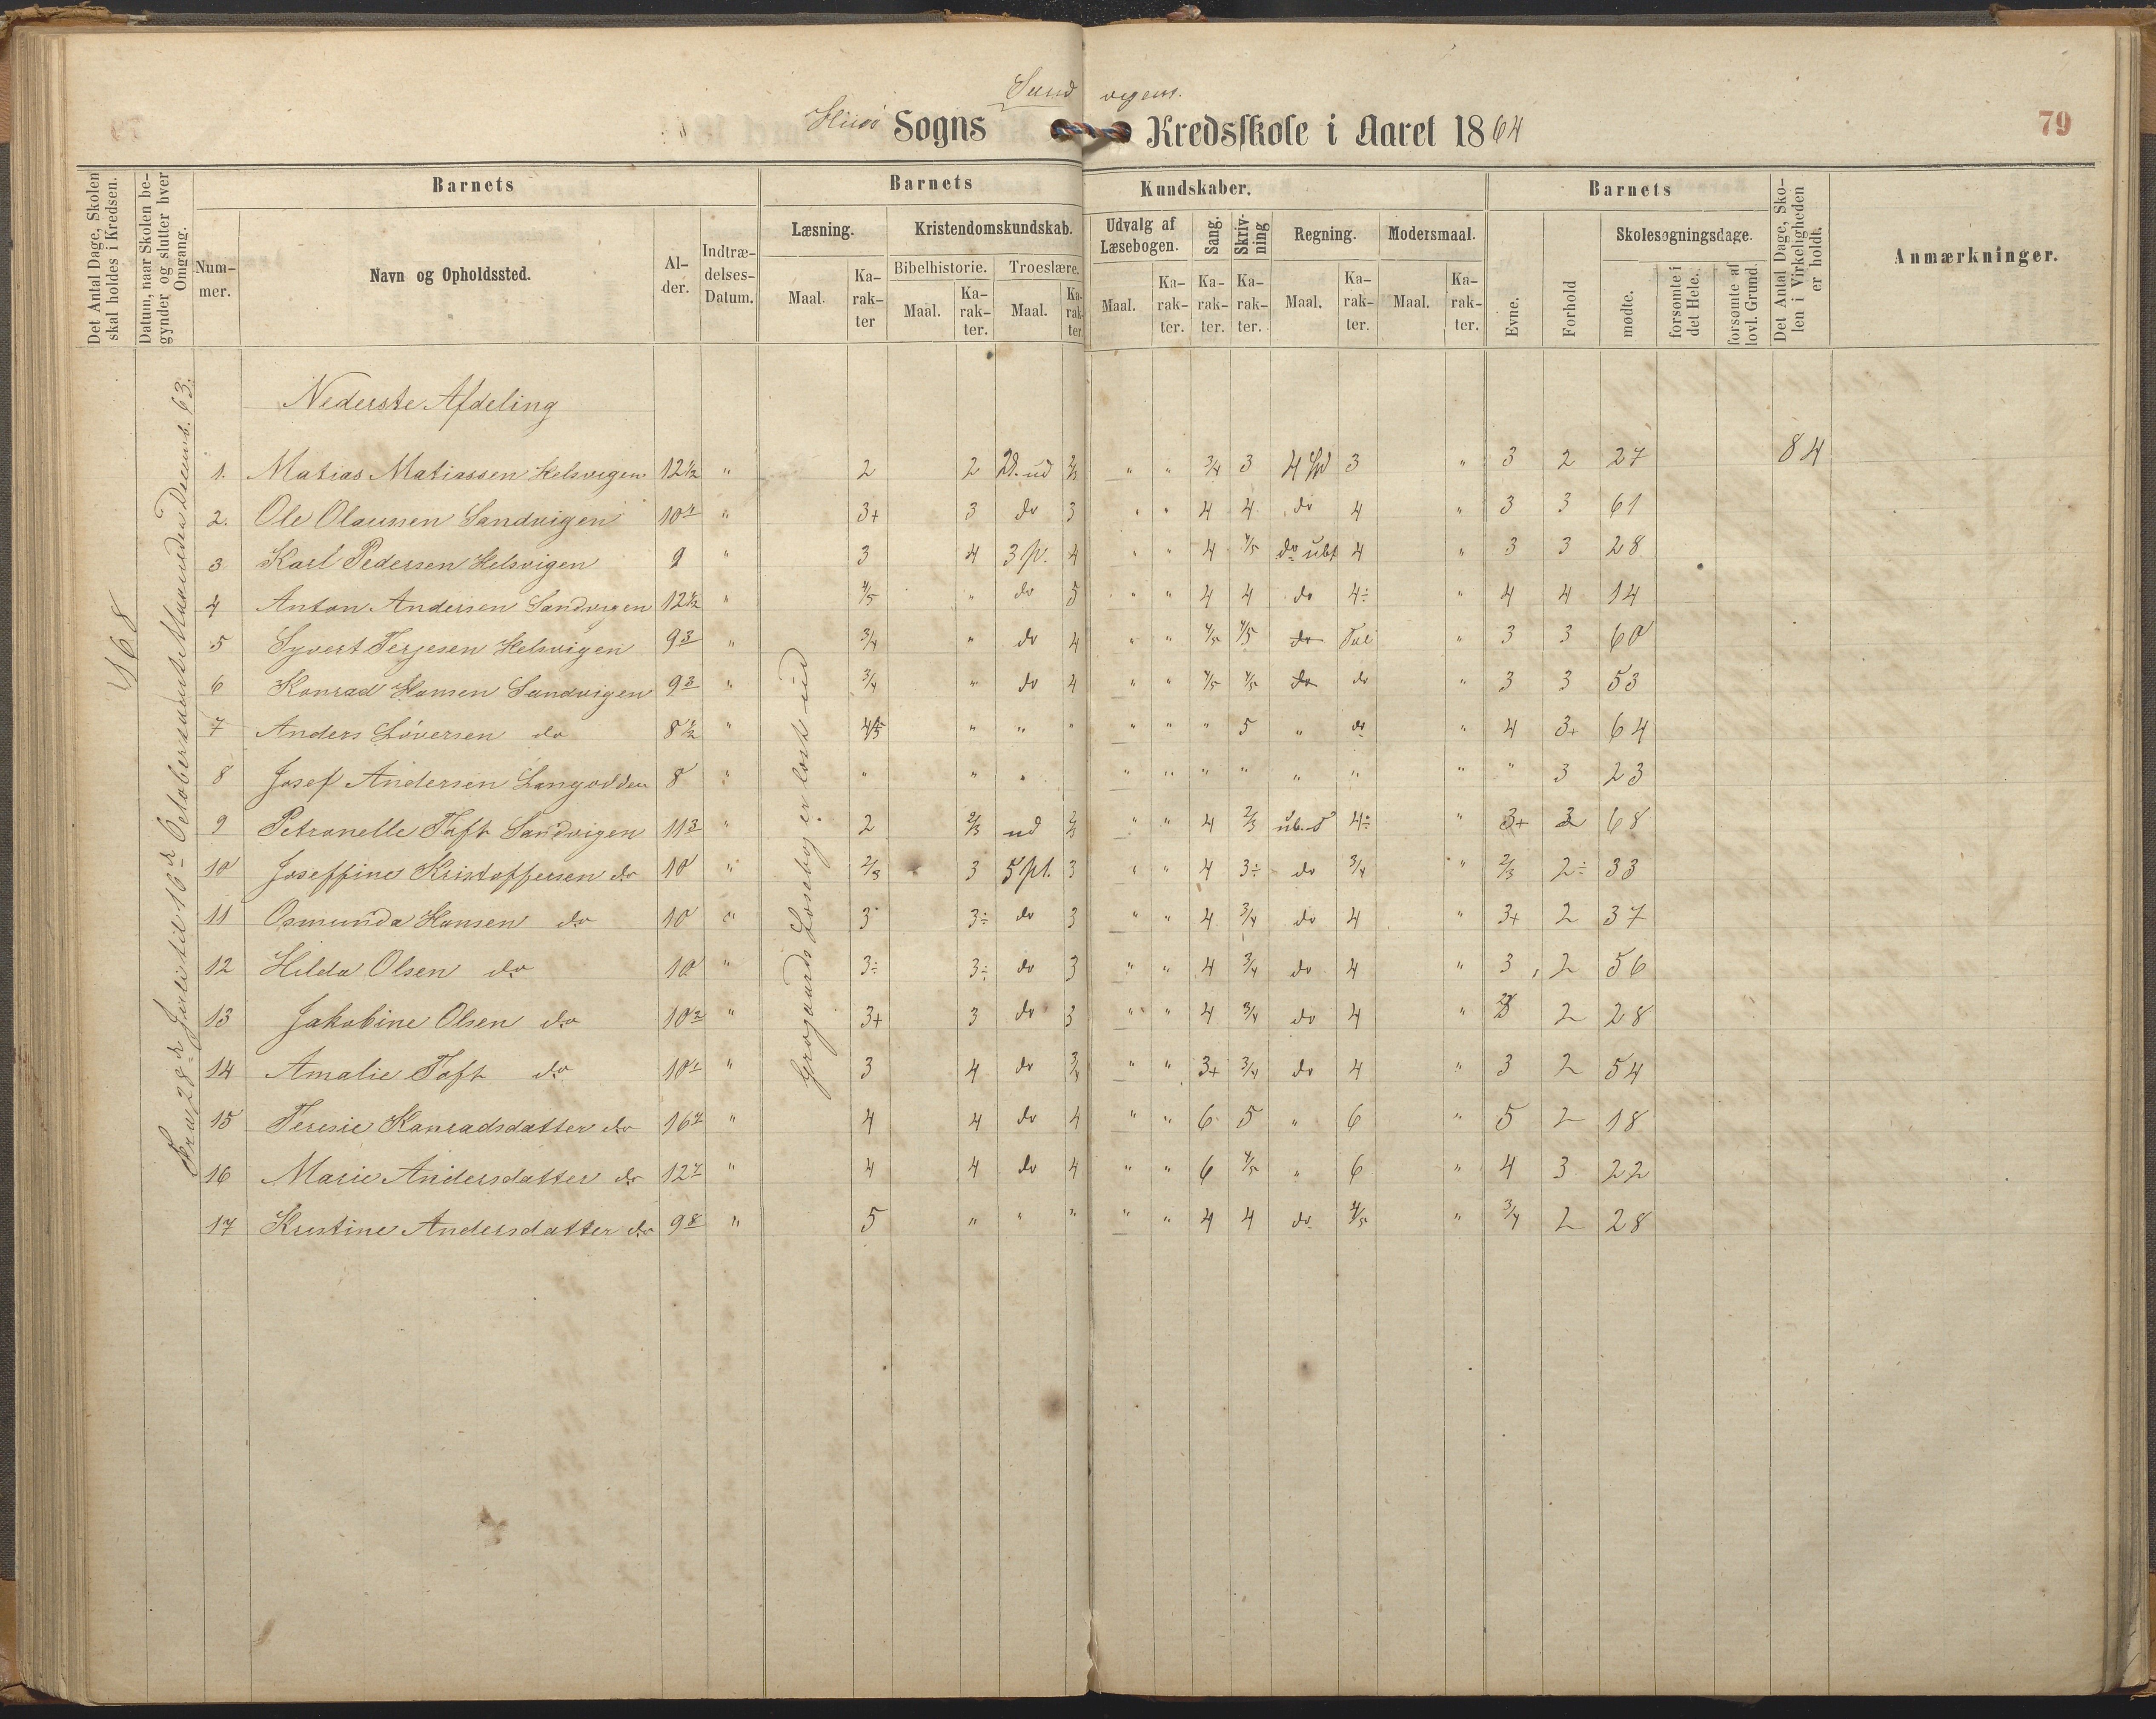 Sandvigens.
Hisø Sogns Kredsskole i Aaret 1864 79
Det Antal Dage, Skolen skal holdes i Kredsen.
Datum, naar Skolen begynder og slutter hver Omgang.
Barnets
Barnets Kundskaber.
Barnets
Det Antal Dage, Skolen i Virkeligheden er holdt.
Anmærkninger.
Nummer. Navn og Opholdssted. Alder. Indtrædelses-Datum.
Læsning. Kristendomskundskab. Udvalg af Læsebogen. Sang. Skrivning Regning. Modersmaal.
Bibelhistorie. Troeslære.
Maal. Karakter Maal. Karakter. Maal. Karakter Maal. Karakter. Karakter. Karakter. Maal. Karakter. Maal. Karakter.
Evne. Forhold Skolesøgningsdage.
mødte. forsømte i det Hele. forsømte af lovl. Grund.
Nederste Afdeling
1. Matias Matiassen Helsvigen 12½ " 2 2 ud 2/3 " " 3/4 3 3 " 3 2 27 84
2. Ole Olaussen Sandvigen 10 " 3+ 3 do 3 " " 4 4 do 4 " 3 3 61
3 Karl Pedersen Helsvigen 9 " 3 4 3 p. 4 " " 4 4/5 do ubt 4 " 3 3 28
4 Anton Andersen Sandvigen 12½ " 4/5 " do 5 " " 4 4 do 4÷ " 4 4 14
5 Syvert Terjesen Helsvigen 9 3 " 3/4 " do 4 " " 4/5 4/5 do Tal " 3 3 60
6 Konrad Hansen Sandvigen 9 3 " 3/4 " do 4 " " 4/5 4/5 do do " 3 3 53
7 Anders Løversen do 8½ " 4/5 " " " " " " 5 " do " 4 3+ 64
8 Josef Andersen Langodden 8 " " " " " " " " " " " " 3 23
9 Petronelle Toft Sandvigen 11 3 " 2 2/3 ud 2/3 " " 4 2/3 4÷ " 3+ 2 68
10 Joseffine Kristoffersen do 10 " 2/3 3 5 pt. 3 " " 4 3÷ do 3/4 " 2/3 2÷ 33
11 Osmunda Hansen do 10 " 3 3÷ do 3 " " 4 3/4 do 4 " 3+ 2 37
12 Hilda Olsen do 10 " 3÷ 3÷ do 3 " " 4 3/4 do 4 " 3 2 56
13 Jakobine Olsen do 10 2 " 3+ 3 do 3 " " 4 3/4 do 4 " 2 28
14 Amalie Toft do 10 " 3 4 do 3/4 " " 3+ 3/4 do 4 " 3 2 54
15 Teresie Konradsdatter do 16 " 4 4 do 4 " " 6 5 " 6 " 5 2 18
16 Marie Andersdatter do 12 " 4 4 do 4 " " 6 4/5 " 6 " 4 3 22
17 Kristine Andersdatter do 9 8 " 5 " " " " " 4 4 do 4/5 " 3/4 2 28
468
Fra 28de Juli til 16de Oktober samt i Maaneden Decemb. 63.
Grøgaards Læsebog er læst ud